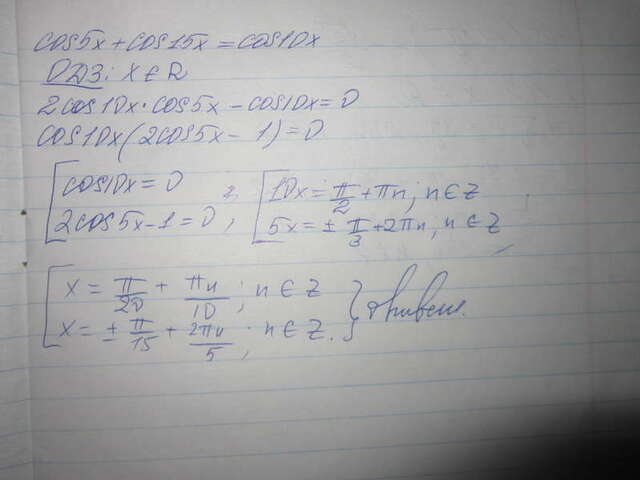 cos5x + cos15x = cos10x
ОДЗ: x ∈ R
2cos10x · cos5x - cos10x = 0
cos10x(2cos5x - 1) = 0
[ cos10x = 0 ; [ 10x = π/2 + πn; n ∈ Z
2cos5x - 1 = 0 ; 5x = ± π/3 + 2πn, n ∈ Z
[ x = π/20 + πn/10 ; n ∈ Z
x = ± π/15 + 2πn/5 ; n ∈ Z. }